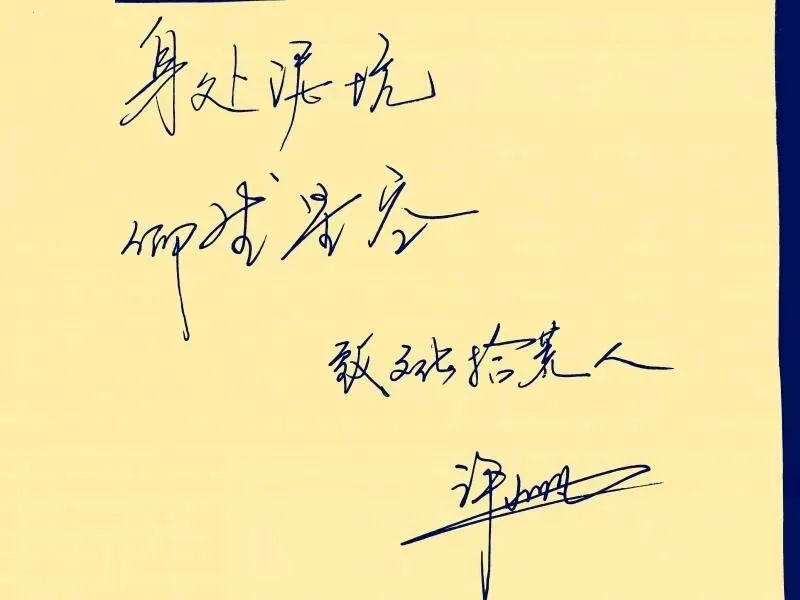 身处泥坑
仰望星空
致文化拾荒人
许